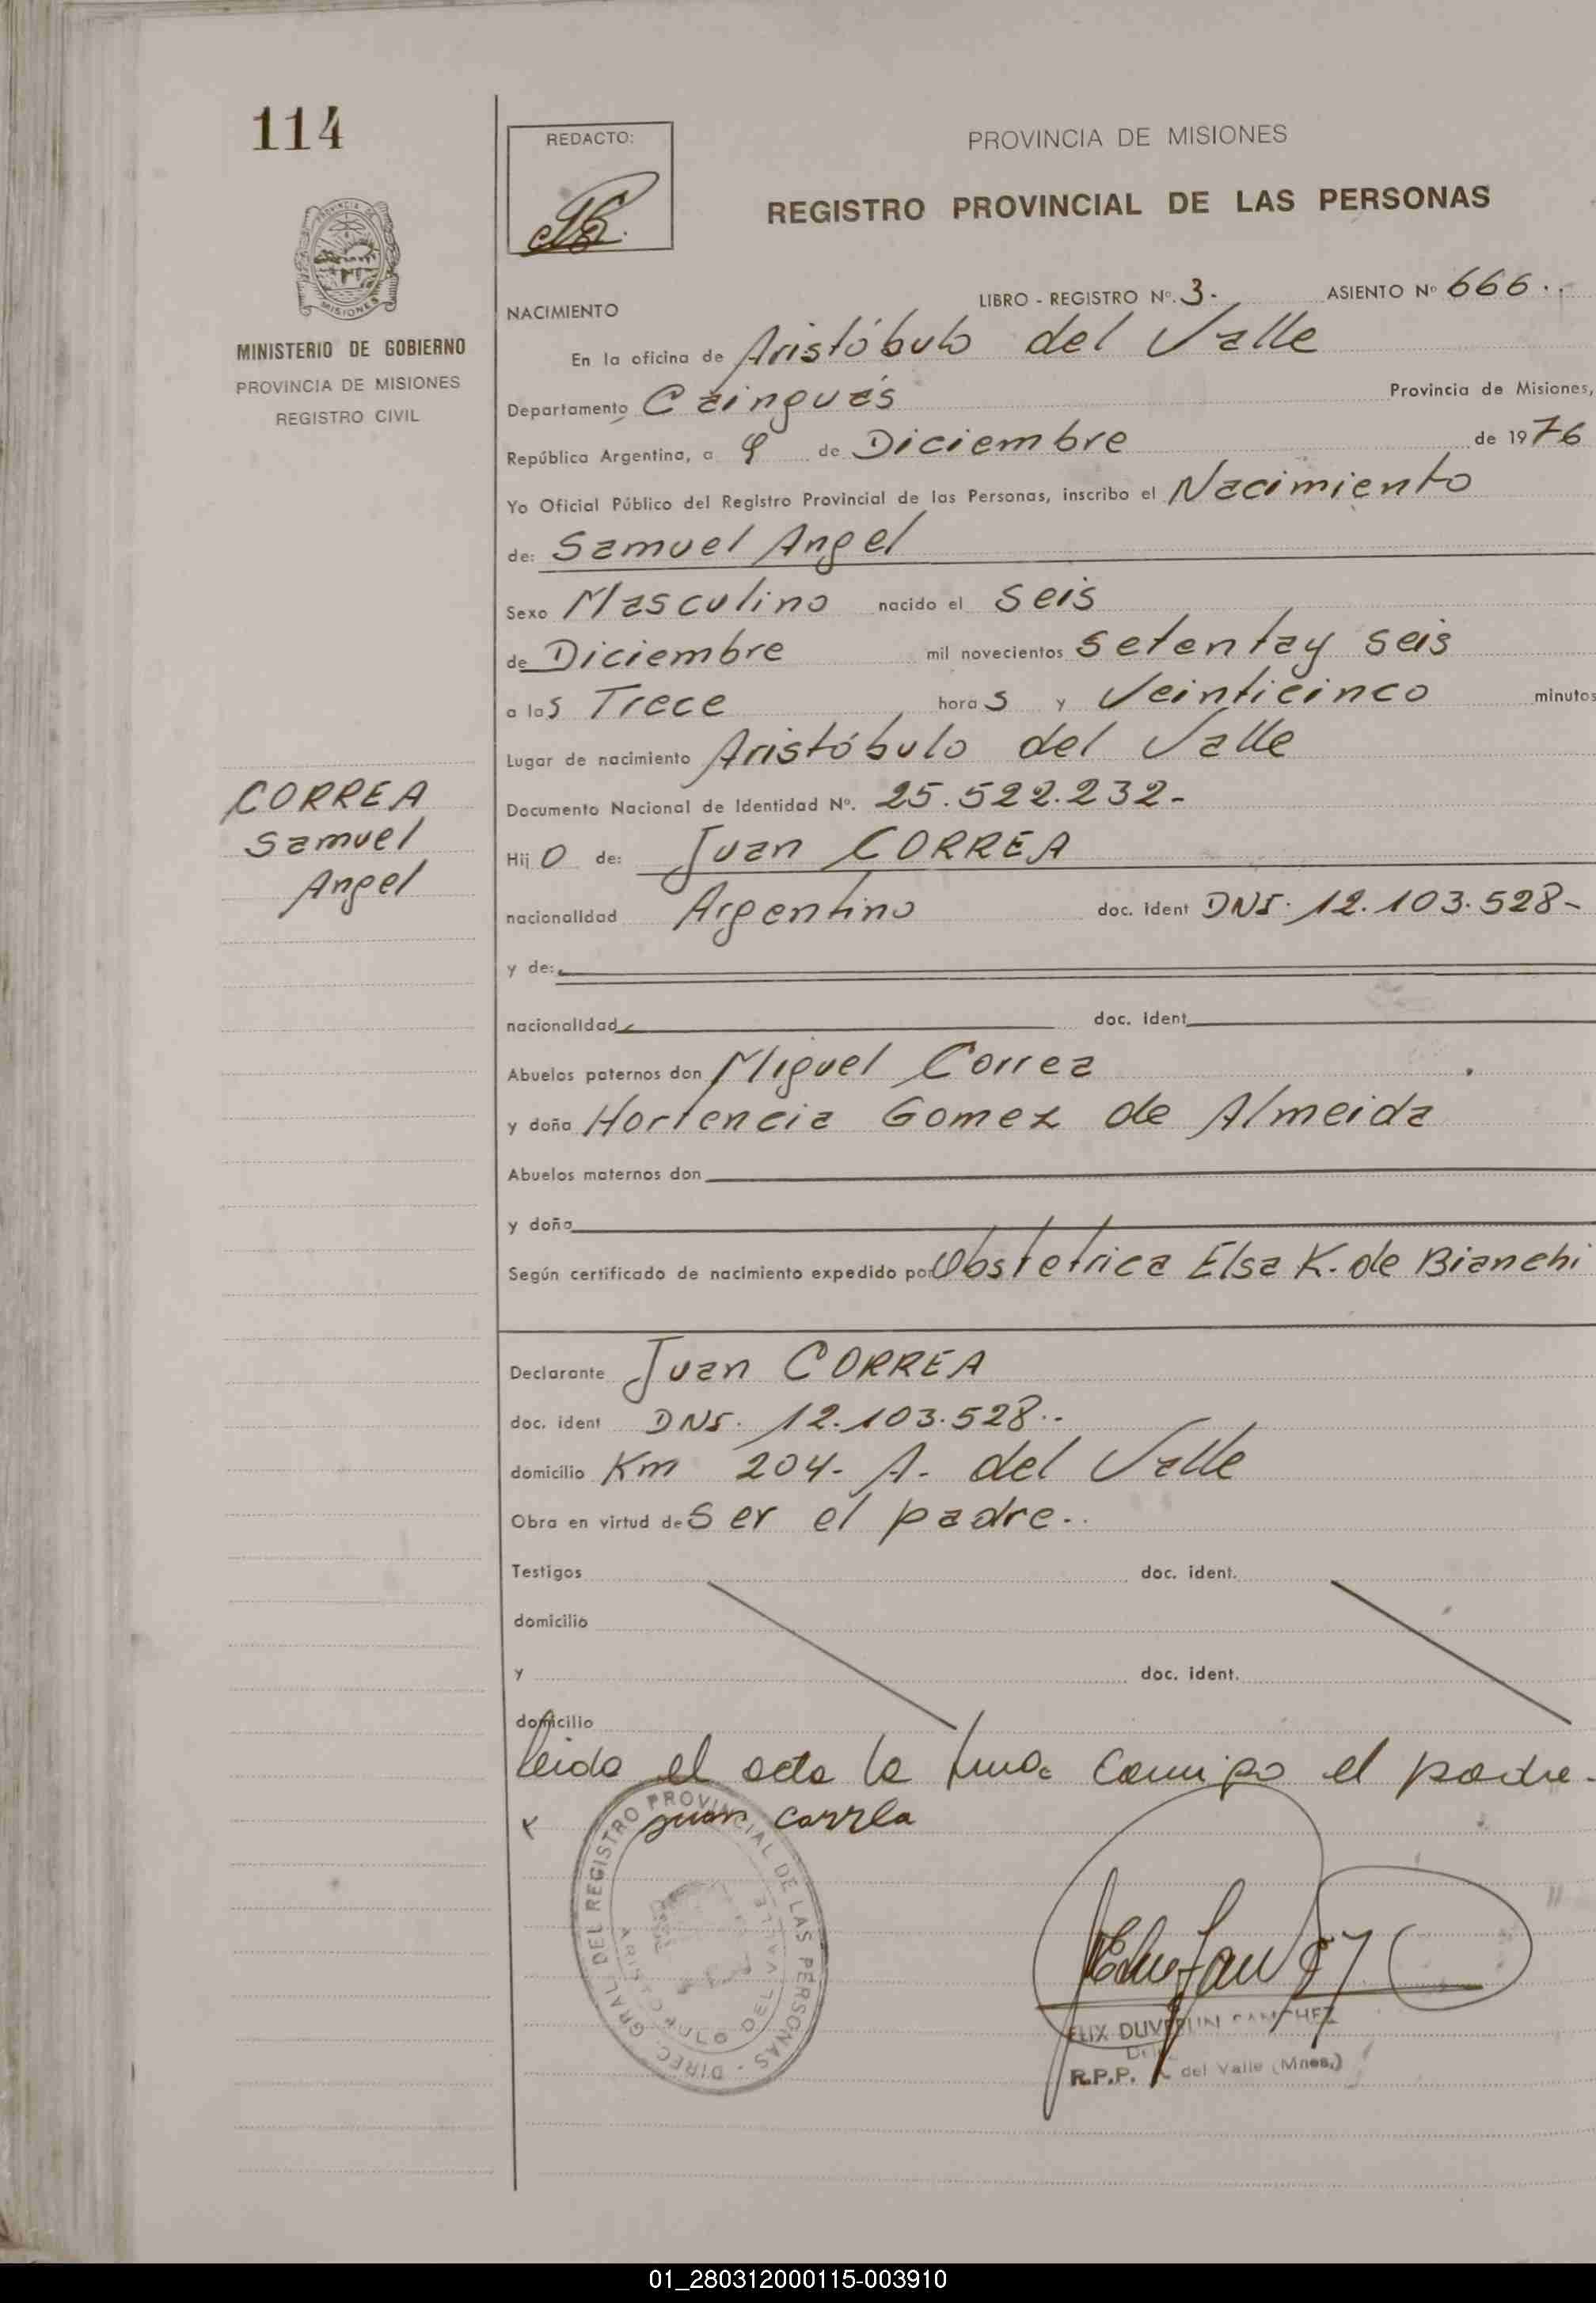 114
REDACTO:
PROVINCIA DE MISIONES
REGISTRO PROVINCIAL DE LAS PERSONAS
PROVINCIA DE
MISIONES
MINISTERIO DE GOBIERNO
PROVINCIA DE MISIONES
REGISTRO CIVIL
NACIMIENTO
LIBRO - REGISTRO Nº. 3. ASIENTO Nº 666..
En la oficina de Aristóbulo del Valle
Departamento Cainguás Provincia de Misiones,
República Argentina, a 9 de Diciembre de 1976
Yo Oficial Público del Registro Provincial de las Personas, inscribo el Nacimiento
de: Samuel Angel
Sexo Masculino nacido el seis
de Diciembre mil novecientos setentay seis
a las Trece horas y Veinticinco minutos
Lugar de nacimiento Aristóbulo del Valle
Documento Nacional de Identidad Nº. 25.522.232-
CORREA
Samuel
Angel
Hijo de: Juan CORREA
nacionalidad Argentino doc. ident DNI. 12.103.528-
y de:
nacionalidad doc. ident
Abuelos paternos don Miguel Correa
y doña Hortencia Gomez de Almeida
Abuelos maternos don
y doña
Según certificado de nacimiento expedido por Obstetrica Elsa K. de Bianchi
Declarante Juan CORREA
doc. ident DNI. 12.103.528..
domicilio Km 204- A. del Valle
Obra en virtud de Ser el padre..
Testigos doc. ident.
domicilio
y doc. ident.
domicilio
leida el acta la firma conmigo el padre.
x juan correa
DIREC. GRAL DEL REGISTRO PROVINCIAL DE LAS PERSONAS -
ARISTOBULO DEL VALLE
SANCHEZ
R.P.P. A. del Valle (Mnes.)
01_280312000115-003910